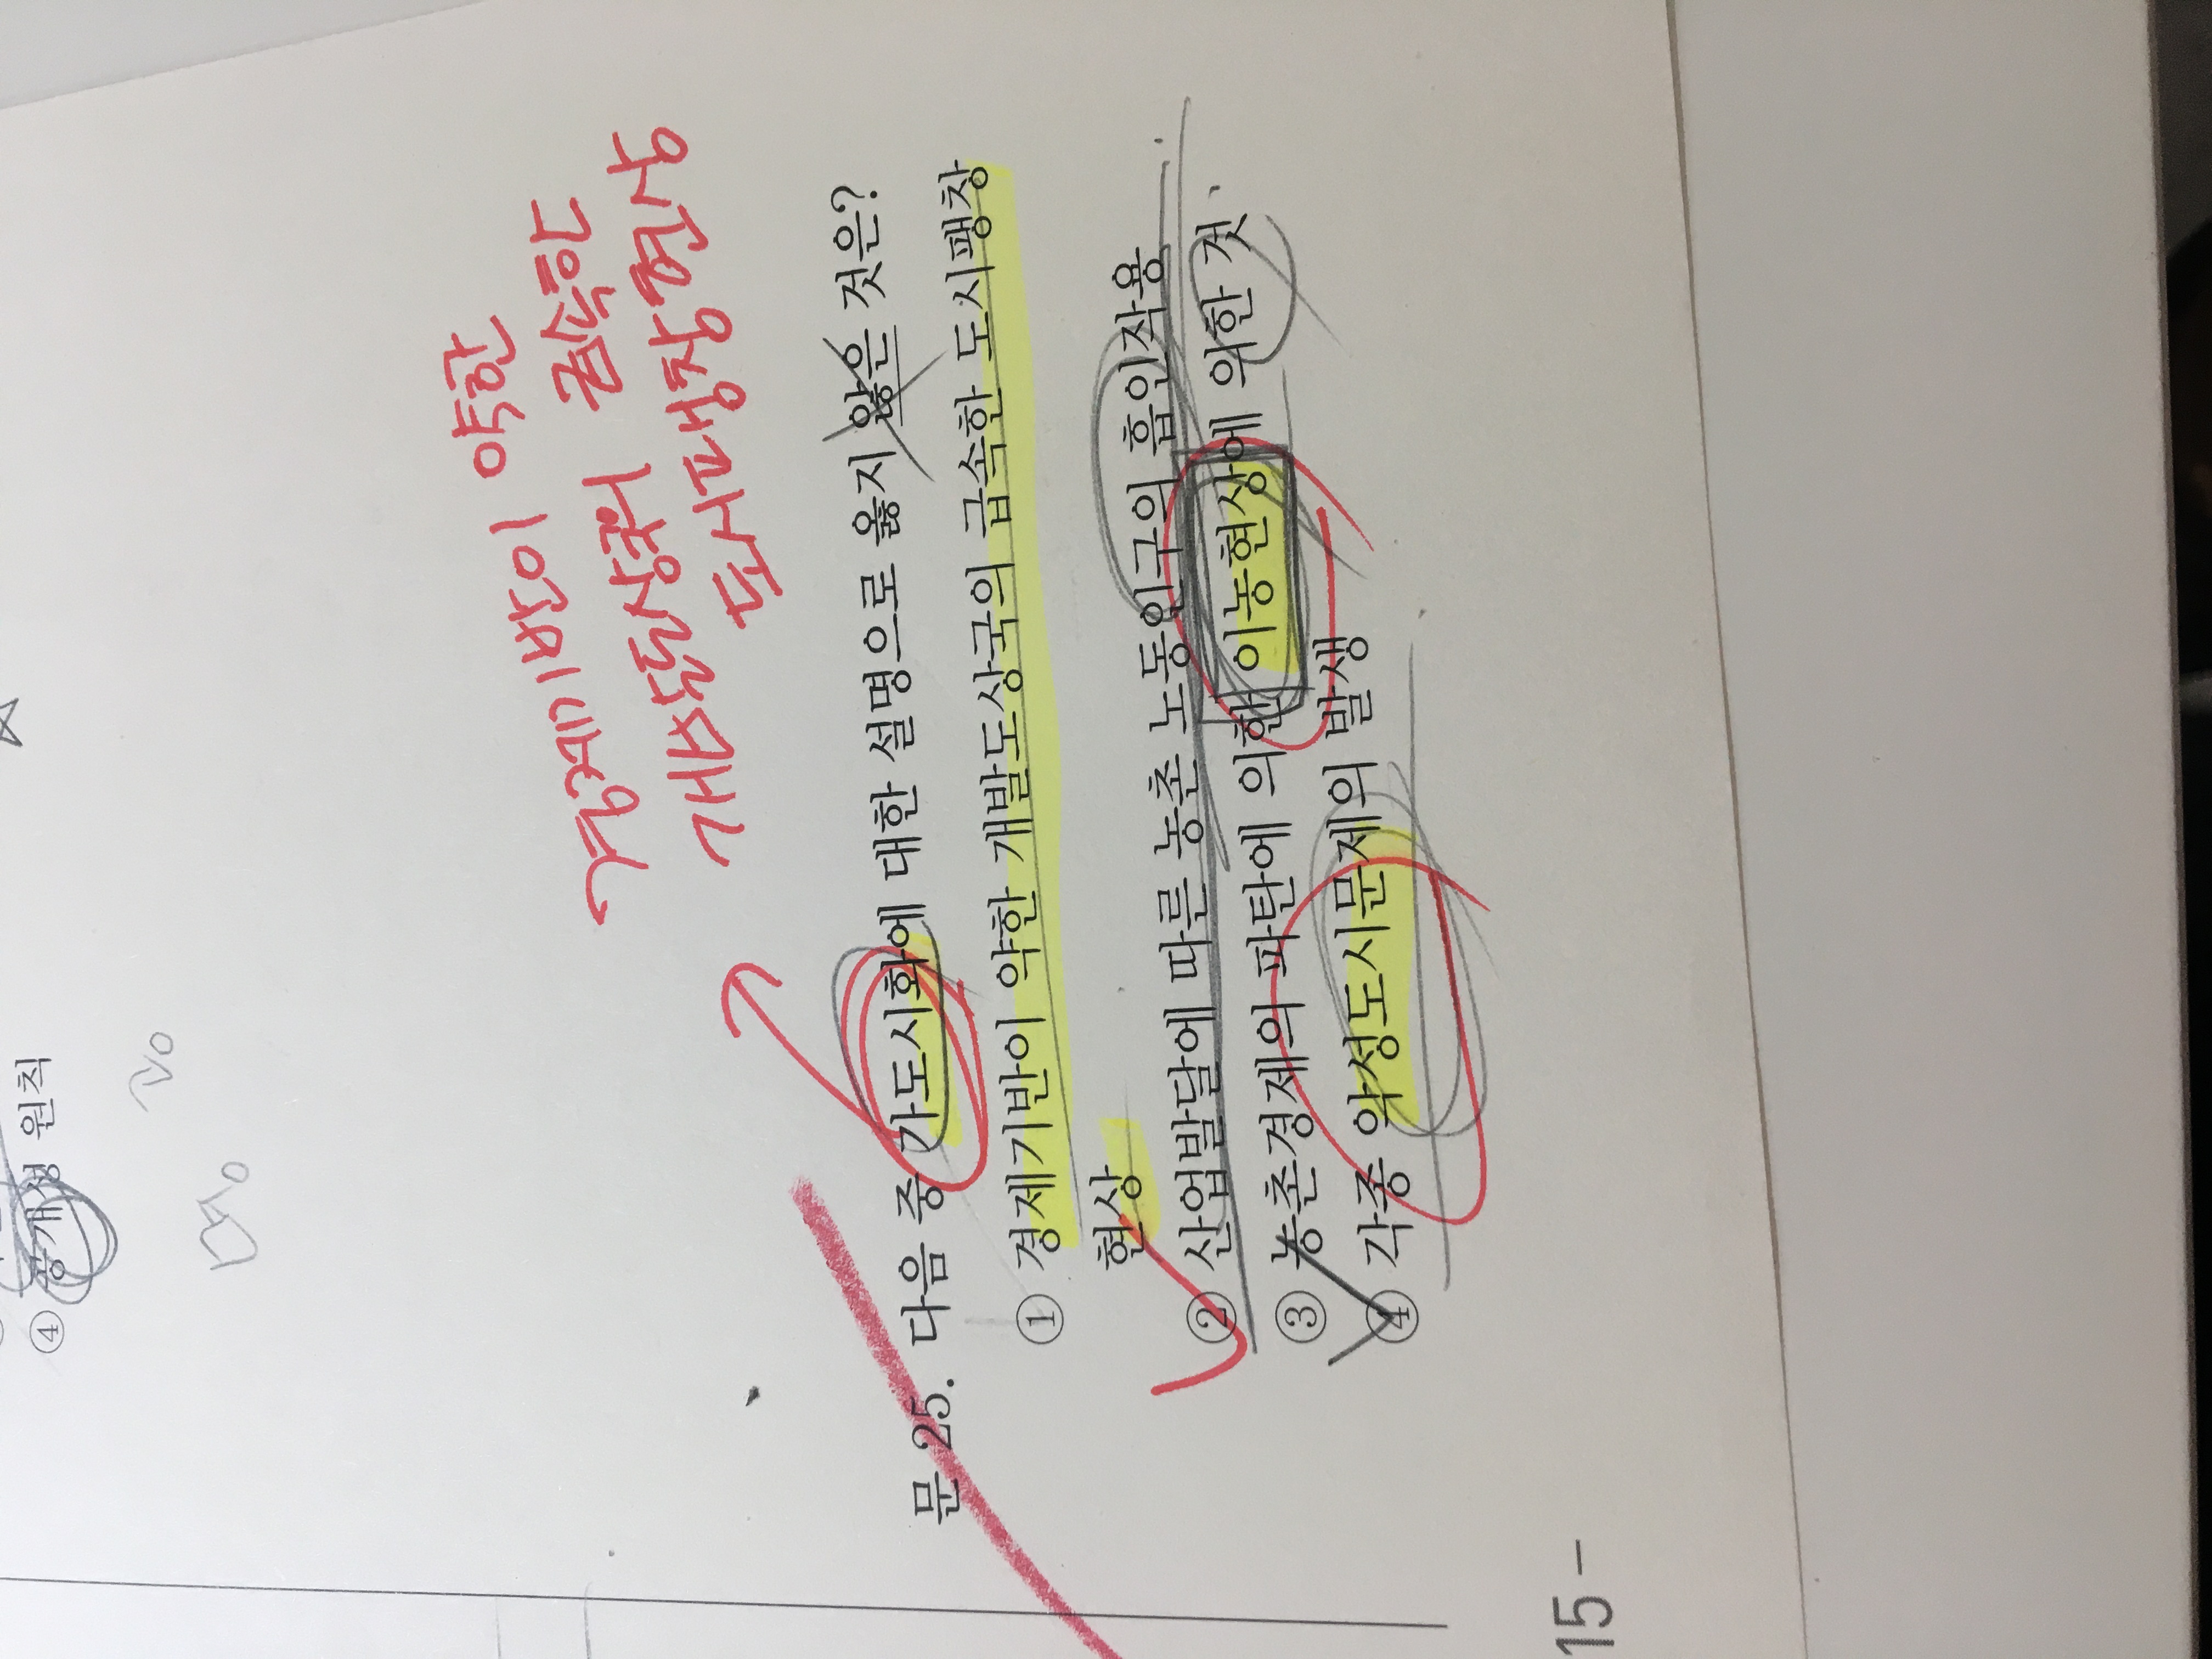 ④ 공개성 원칙
경제기반이 약한
개발도상국의 급속한
도시팽창현상
문 25. 다음 중 가도시화에 대한 설명으로 옳지 않은 것은?
① 경제기반이 약한 개발도상국의 급속한 도시팽창
현상
② 산업발달에 따른 농촌 노동인구의 흡인작용
③ 농촌경제의 파탄에 의한 이농현상에 의한 것
④ 각종 악성도시문제의 발생
15 -